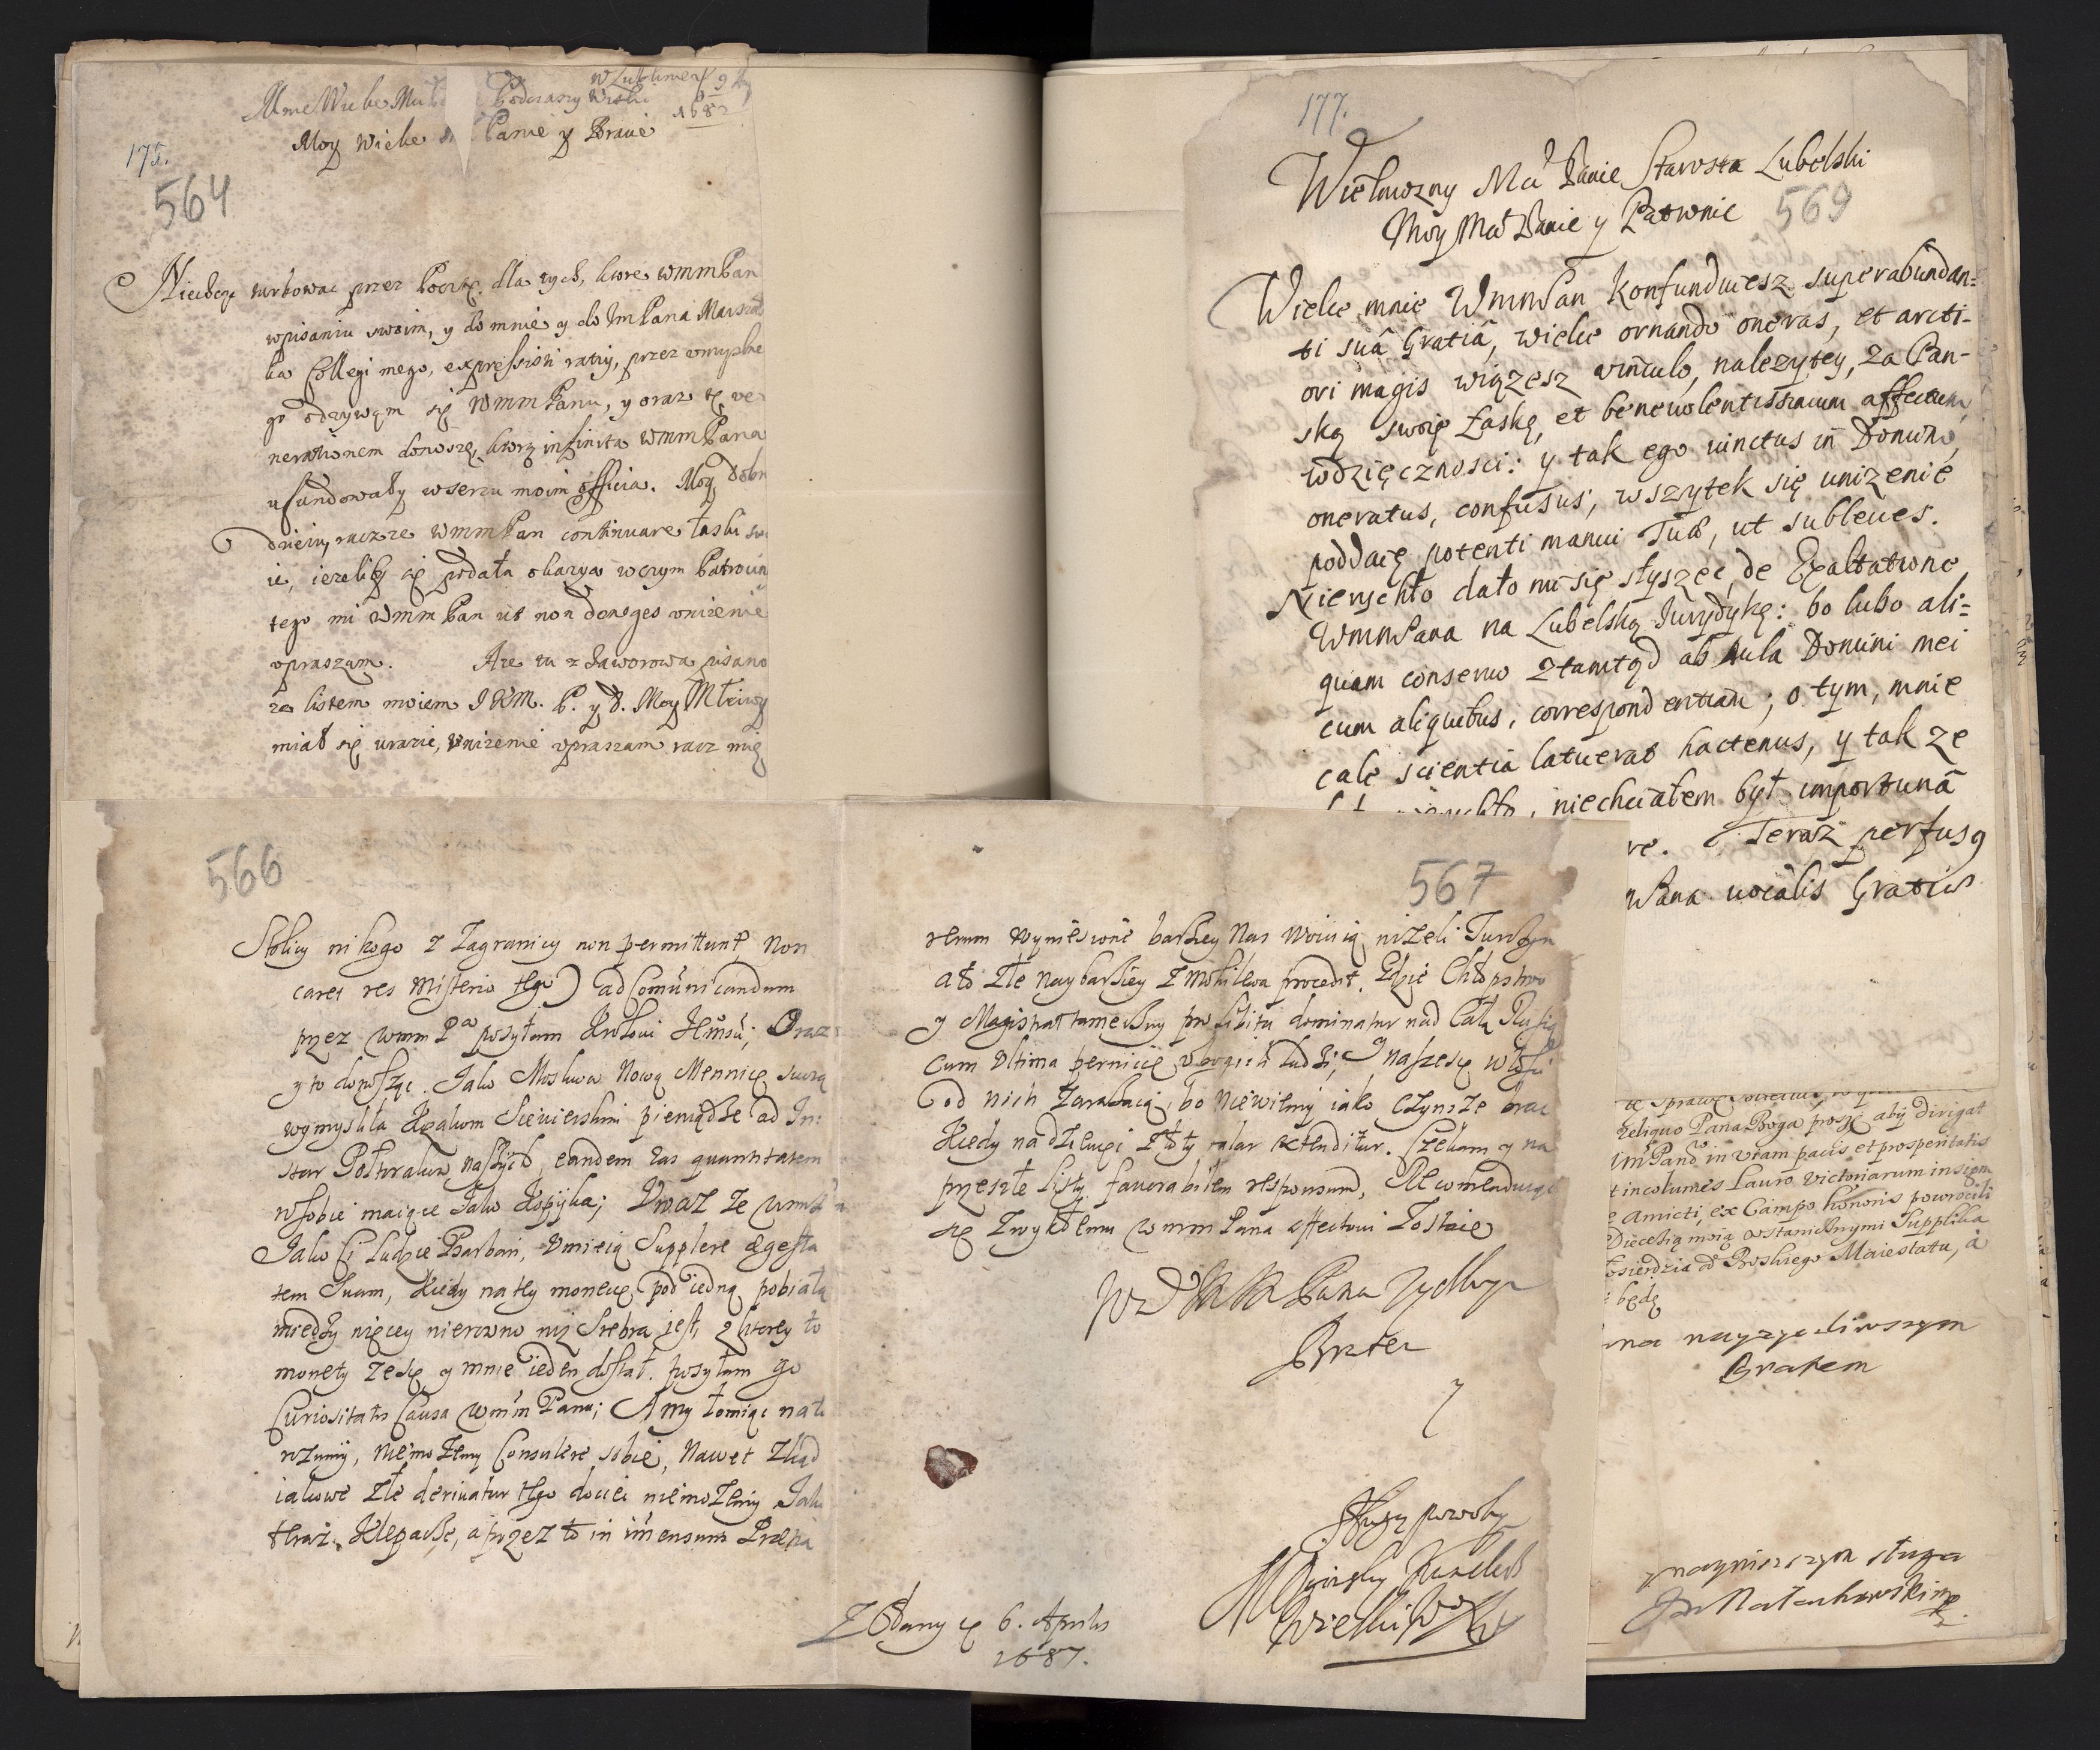 w Lublinie
1682
Podczaszy
Moy Wielce Panie y Bracie
175.
564
Niechcę turbować przez Pocztę. dla tych, ktore WmmPan
wpisaniu swoim, y do mnie y do ImPana Marszał
ka Collegi mego, expressit raciy, przez umyslne
go odzywam się WmmPanu, y oraz tę ve
nerationem donoszę, ktorą infinita WmmPana
ufundowały w sercu moim officia. Moy Dobro
dzieiu, racz ze WmmPan continuare łaski swe
ie, ieżeliby się podała okazya w czym Patrocin
tego mi WmmPan ut non deneges unizenie
upraszam. Aze tu z Jaworowa pisano
ze listem moiem J K M. P. y D. Moy Młciwy
miał się urazić, unizenie upraszam racz mię
177.
Wielmozny Mći Panie Starosta Lubelski
Moy Mći Panie y Patronie
569
Wielce mnie WmmPan Konfunduiesz superabundan=
ti suâ Gratiâ, wielce ornando oneras, et arcti-
ori magis wiązesz vinculo, nalezytey, za Pan-
ską swoię Łaskę, et benevolentissimum affectum,
wdzięcznosci: y tak ego uinctus in Domino,
oneratus, confusus, wszytek się unizenie
poddaię potenti manui Tuae, ut subleues.
Nierychło dało mi się słyszeć, de Exaltatione
WmmPana na Lubelską Jurydykę: bo lubo ali=
quam conseruo ztamtąd ab Aula Domini mei
cum aliquibus, correspondentiam; o tym, mnie
cale scientia latuerat hactenus, y tak ze
nierychło, niechciałem być importunâ
re. Teraz perfusus
mPana uocalis Gratiis
566
Stolicy nikogo z Zagranicy non permittunt, non
caret res misterio tego) ad Communicandum
przez wmm Pa posyłam Krolowi JEmsci; Oraz
y to donoszę. Jako Moskwa Nową Mennicę swoią
wymysliła Xzałom Siewierskim pieniądze ad In:
star Połtorakow naszych, eandem zas quantitatem
w sobie maiące Jako Kopijka; Uważ ze wmm
Jako Ci ludzie Barbari, umieią Supplere egesta
tem suam, kiedy na tey monecie pod iedną pobiałą
miedzy więcey nierowno niz Srebra jest, z ktorey to
monety ze się y mnie ieden dostał. posyłam go
Curiositatis Causa wmm Panu; A my łomiąc nad
rozumy, niemozemy Consulere sobie, Nawet zkąd
iakowe złe deriuatur tego dociec niemozemy Jako
teraz Klepacze, a przez to in immensum Precia
567
rerum wyniesione barziey Nas woiuią nizeli Turczyn
a to złe naybarziey z Mohilewa procedit. Gdzie Chłopstwo
y Magistrat tameczny pro libitu dominatur nad Całą Rusią
Cum ultima pernicie ubogich ludzi; y nasze się włości
od nich zarażaią, bo niewiemy iako Czynsze brac
Kiedy na dziewięć Złoty talar extenditur. Czekam y na
przeszłe Listy fauorabilem responsum, Recomenduiąc
się Zwykłemu wmm Pana affectowi Zostaię
WMM Pana Zyczliwym
Bratem
y
Sługą powolnym
Wielki WXL
Z Gdany 6. Aprilis
1687.
reliquo Pana Boga proszę aby dirigat
ImPand in viam pacis et prosperitatis
t incolumes Lauro victoriarum insigni
e amicti, ex Campo honoris powrocili
Diecezią moią ustawicznymi Supplika
łosierdzia od Boskiego Maiestatu, a
będę
na nayzyczliwszym
Bratem
y naynizszym sługą
Jn Małachowski